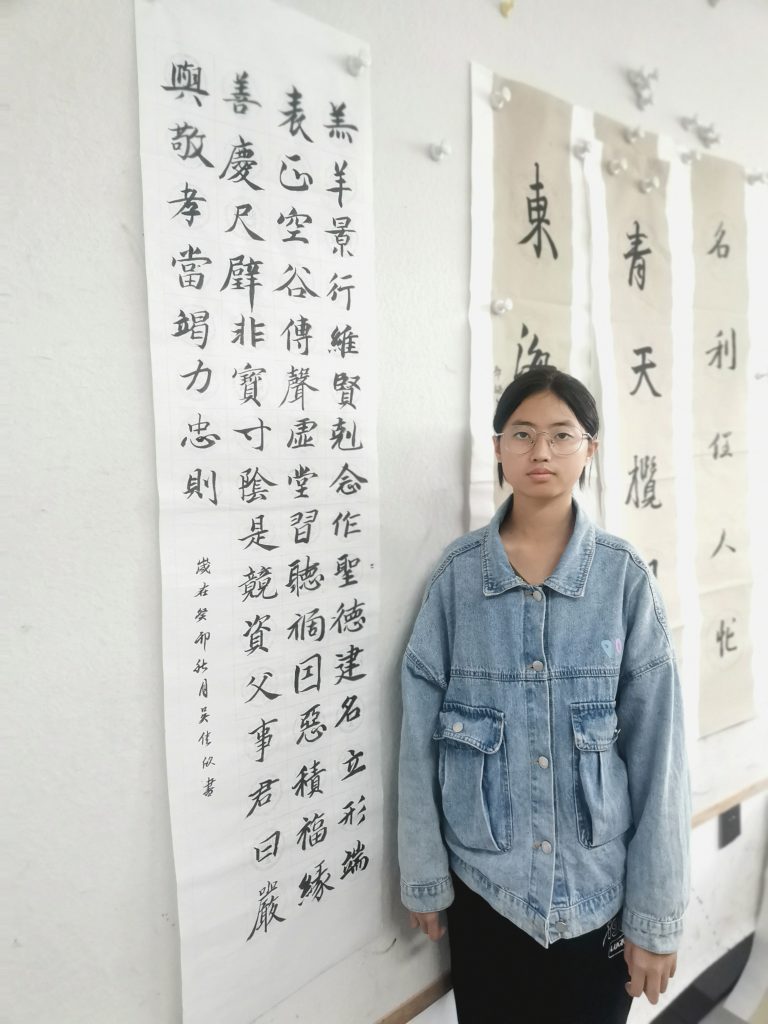 羔羊景行維賢剋念作聖德建名立形端
表正空谷傳聲虛堂習聽禍因惡積福緣
善慶尺璧非寶寸陰是競資父事君曰嚴
與敬孝當竭力忠則
歲在癸卯秋月吳佳欣書
東海
青天攬
名利任人忙